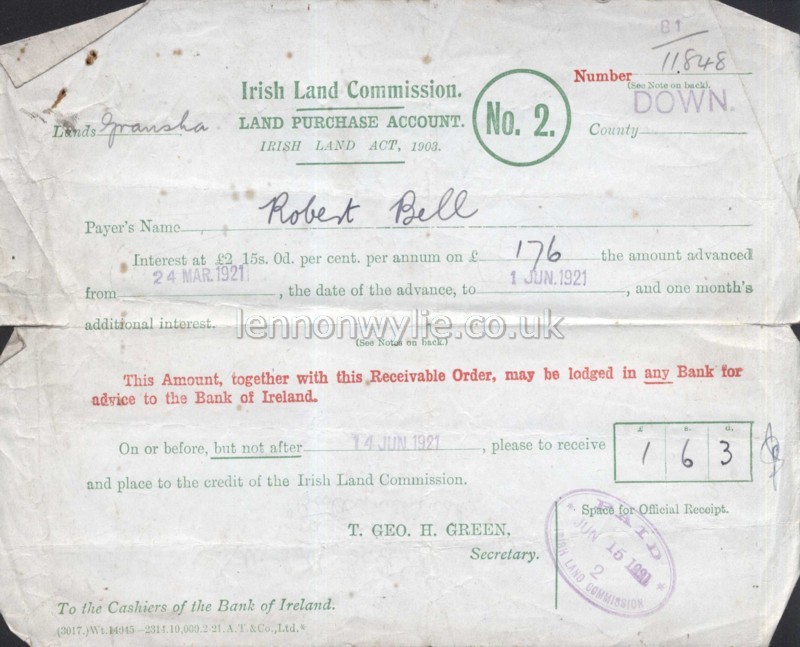 81
11848
Number
(See Note on back).
DOWN.
County
Irish Land Commission.
LAND PURCHASE ACCOUNT.
IRISH LAND ACT, 1903.
No. 2.
Lands Gransha
Payer's Name Robert Bell
Interest at £2 15s. 0d. per cent. per annum on £ 176 the amount advanced
from 24 MAR. 1921, the date of the advance, to 1 JUN. 1921, and one month's
additional interest.
lennonwylie.co.uk
(See Notes on back.)
This Amount, together with this Receivable Order, may be lodged in any Bank for
advice to the Bank of Ireland.
On or before, but not after 14 JUN 1921, please to receive
£ s. d.
1 6 3
and place to the credit of the Irish Land Commission.
T. GEO. H. GREEN,
Secretary.
Space for Official Receipt.
PAID
JUN 15 1921
2
IRISH LAND COMMISSION
To the Cashiers of the Bank of Ireland.
(3017.) Wt. 14045—2314.10,000.2-21.A.T.&Co., Ltd.*